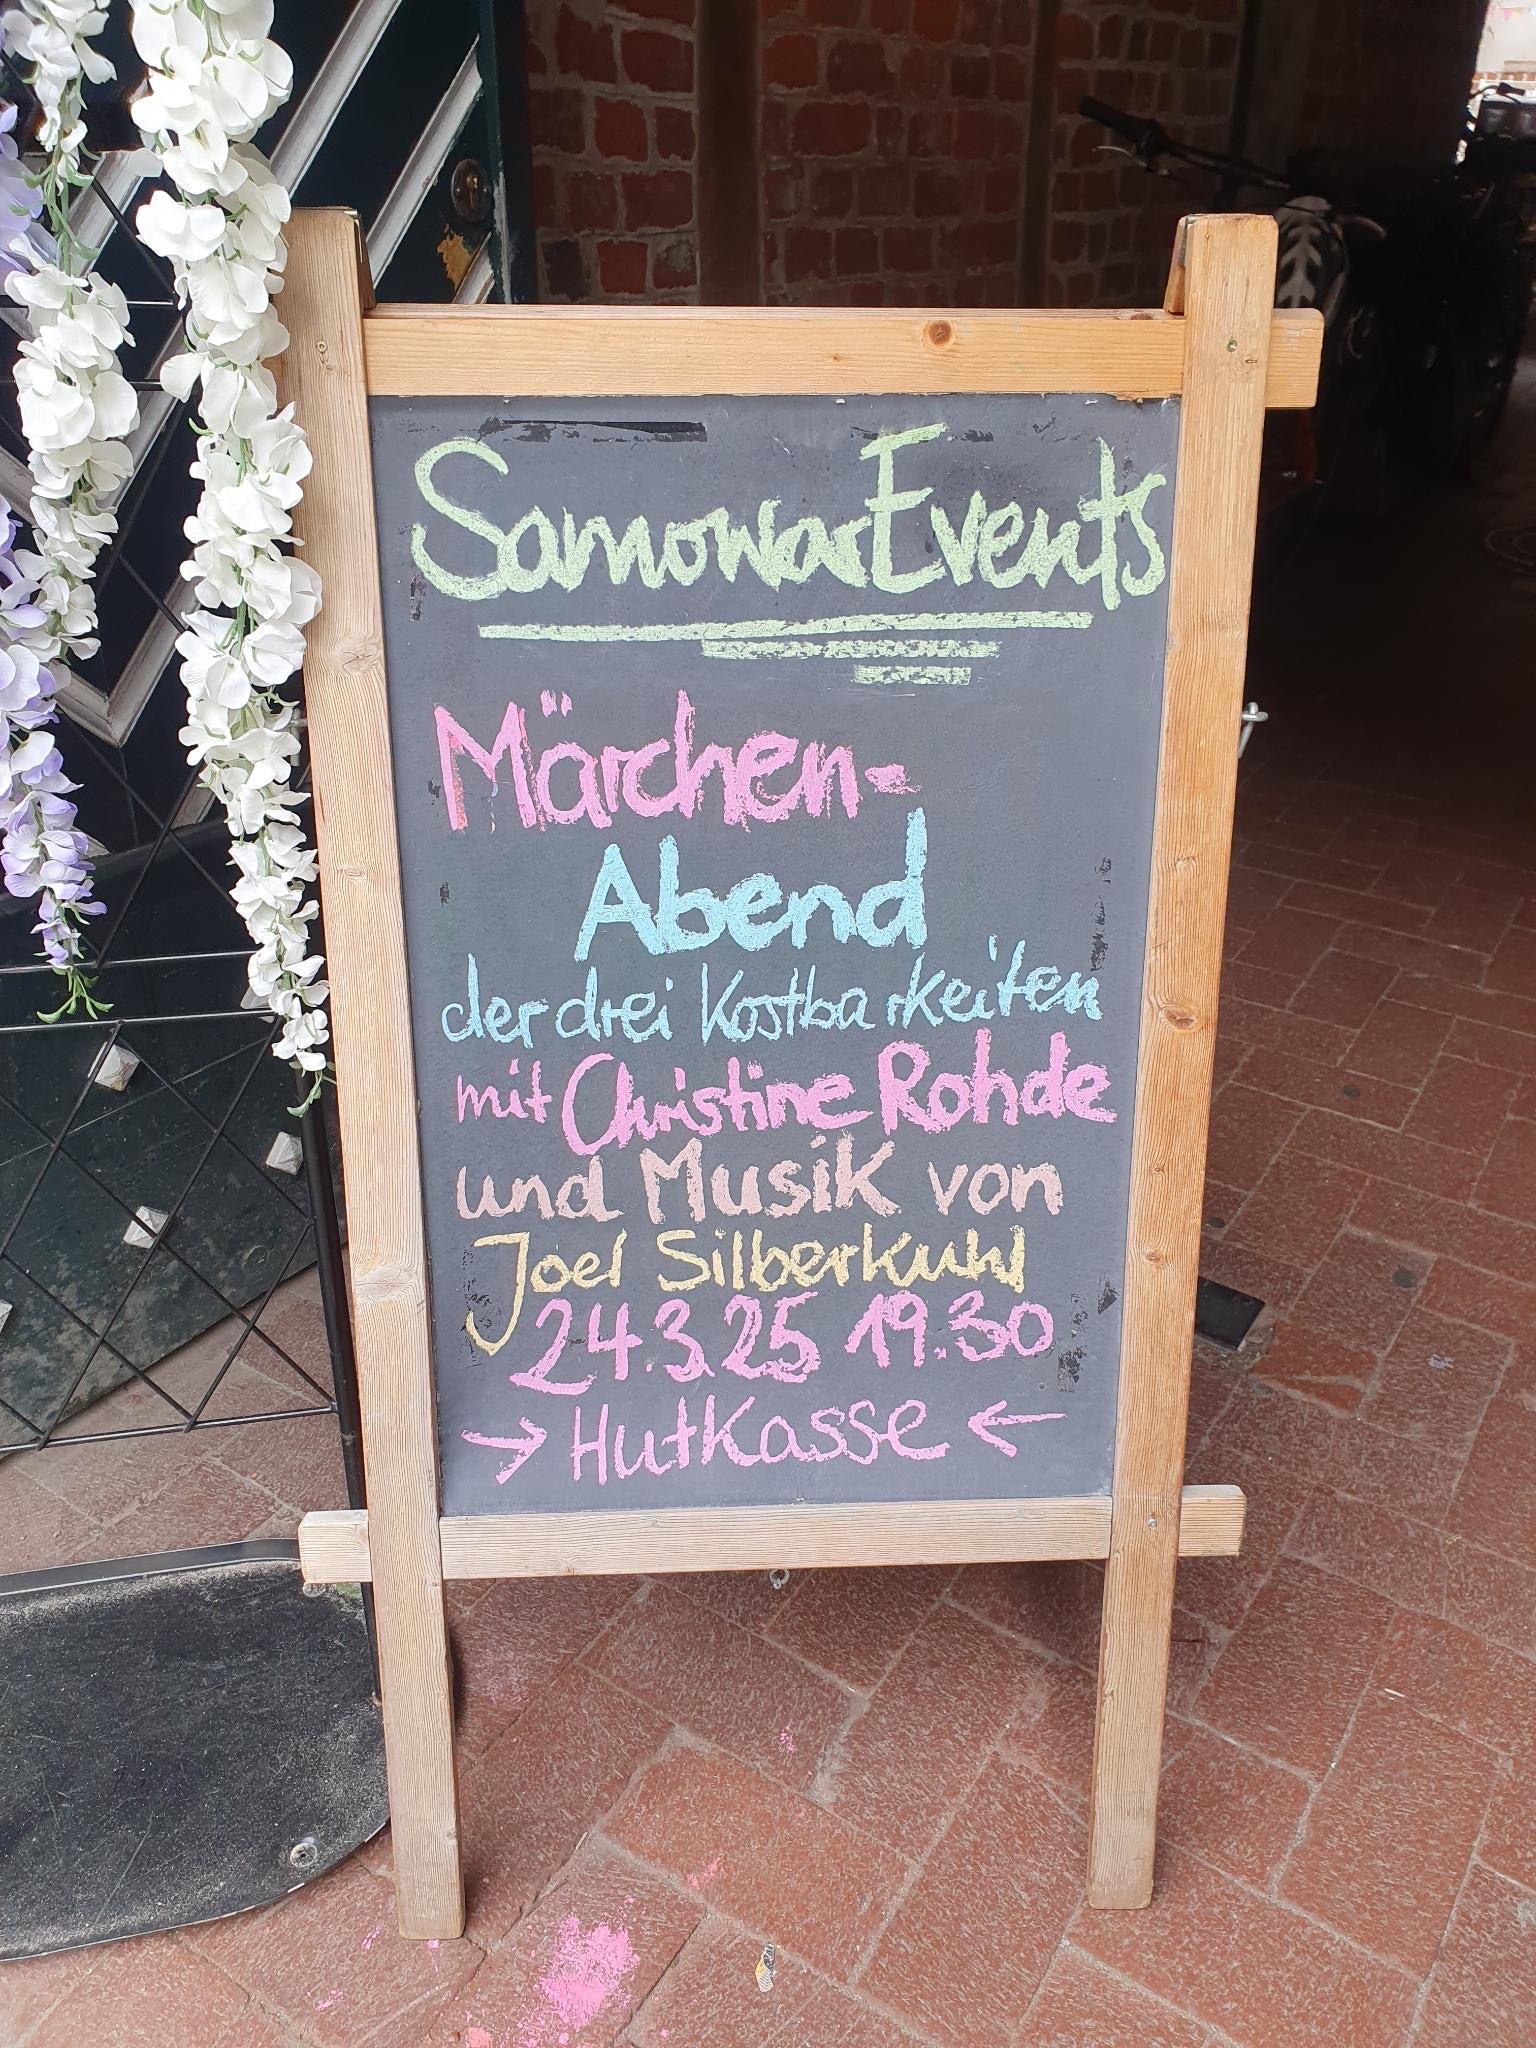 SamowarEvents
Märchen-
Abend
der drei Kostbarkeiten
mit Christine Rohde
und Musik von
Joel Silberkuhl
24.3.25 19.30
→ Hutkasse ←